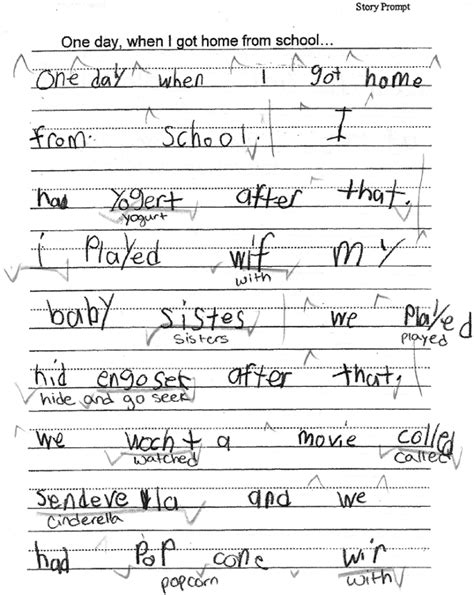 Story Prompt
One day, when I got home from school...
One day when I got home
from. School. I
had Yogert after that.
yogurt
i Played wif MY
with
baby sistes we Played
sisters played
hid engosek after that,
hide and go seek
we wocht a movie colled
watched called
Sendevella and we
Cinderella
had PoP cone wir
popcorn with